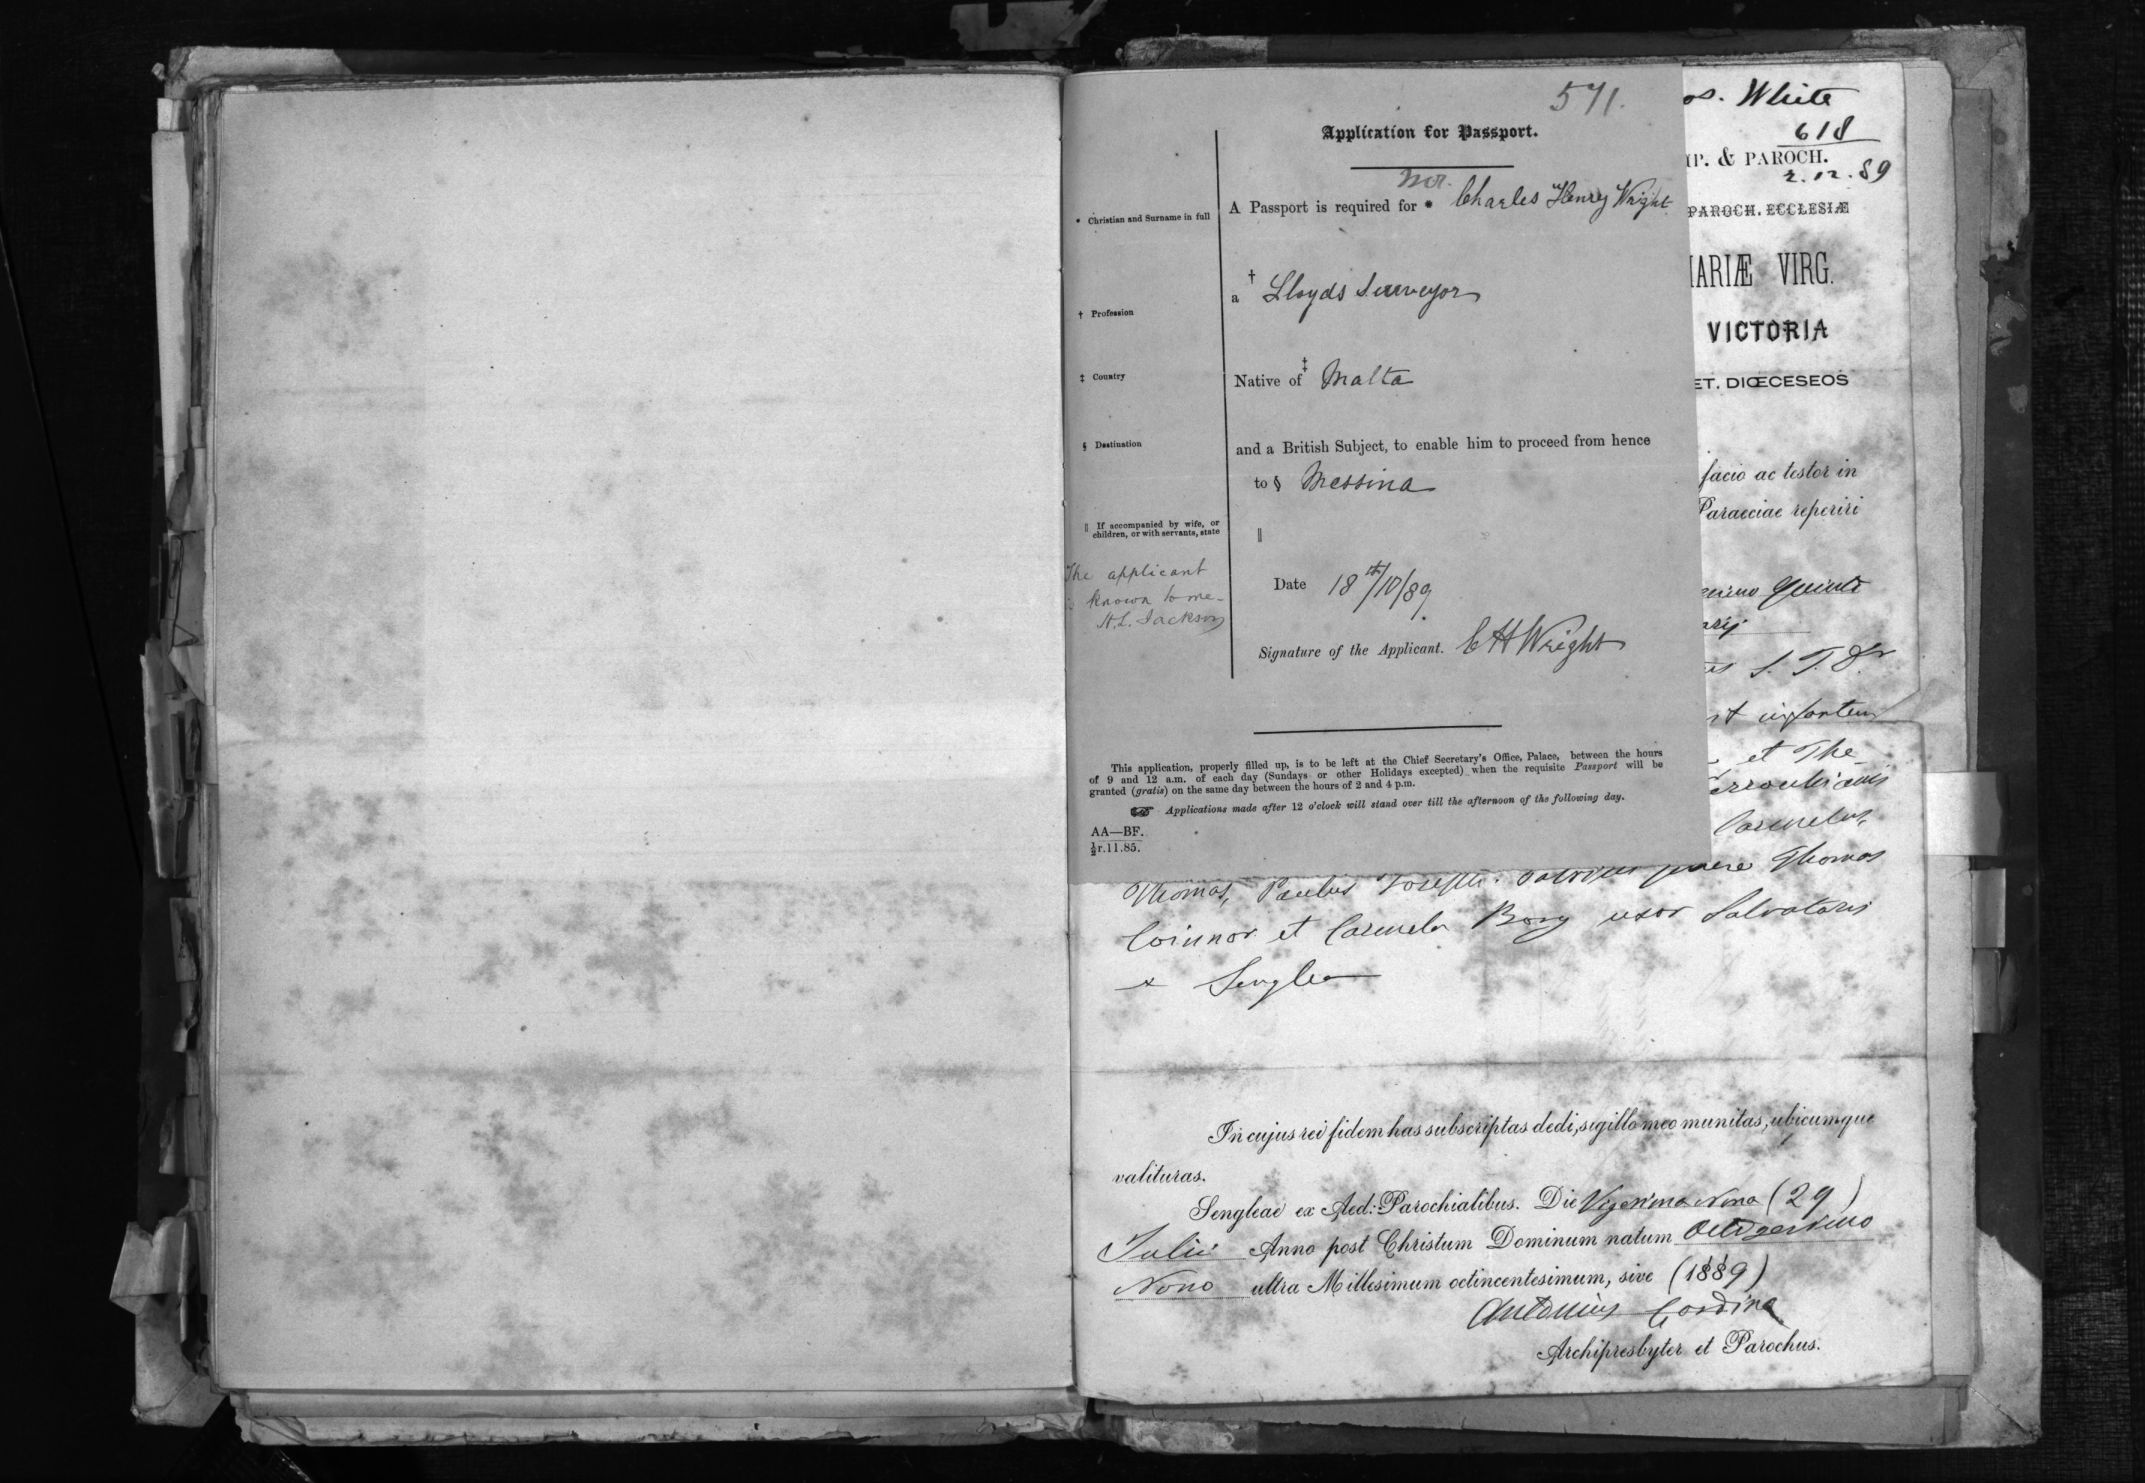 571.
Application for Passport.
Mr.
* Christian and Surname in full
A Passport is required for * Charles Henry Wright
† Profession
a † Lloyds Surveyor
‡ Country
Native of ‡ Malta
§ Destination
and a British Subject, to enable him to proceed from hence
to § Messina
‖ If accompanied by wife, or
children, or with servants, state
‖
The applicant
is known to me-
H.L. Jackson
Date 18th/10/89
Signature of the Applicant. C H Wright
This application, properly filled up, is to be left at the Chief Secretary's Office, Palace, between the hours
of 9 and 12 a.m. of each day (Sundays or other Holidays excepted) when the requisite Passport will be
granted (gratis) on the same day between the hours of 2 and 4 p.m.
☞ Applications made after 12 o'clock will stand over till the afternoon of the following day.
AA—BF.
½r.11.85.
os. White
618
IP. & PAROCH.
2.12.89
PAROCH. ECCLESIÆ
MARIÆ VIRG.
VICTORIA
ET. DIŒCESEOS
facio ac testor in
Paraeciae reperiri
Quinti
S. T. D.
infantem
et The
Carmelus,
Thomas, Paulus Joseph. Thomas
et Carmela Borg uxor Salvatoris
x Senglea
In cujus rei fidem has subscriptas dedi, sigillo meo munitas, ubicumque
valituras.
Sengleae ex Aed: Parochialibus. Die Vigesima Nona (29)
Julii Anno post Christum Dominum natum Octogesimo
Nono ultra Millesimum octincentesimum, sive (1889)
Antonius Cordina
Archipresbyter et Parochus.